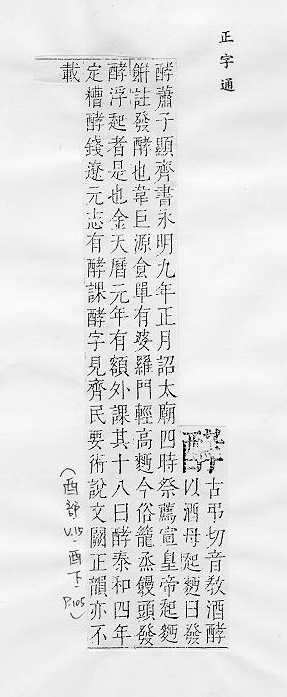 正字通
酵
古弔切音敎酒酵
以酒母起麪曰發
酵蕭子顯齊書永明九年正月詔太廟四時祭薦宣皇帝起麪
餠註發酵也韋巨源食單有婆羅門輕高麪今俗籠蒸饅頭發
酵浮起者是也金天曆元年有額外課其十八曰酵泰和四年
定糟酵錢遼元志有酵課酵字見齊民要術說文闕正韻亦不
載
(酉部 V.15.酉下 P.105)